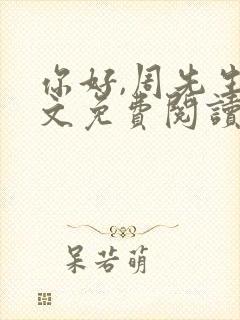 你好,周先生
文免费閱讀
呆若萌